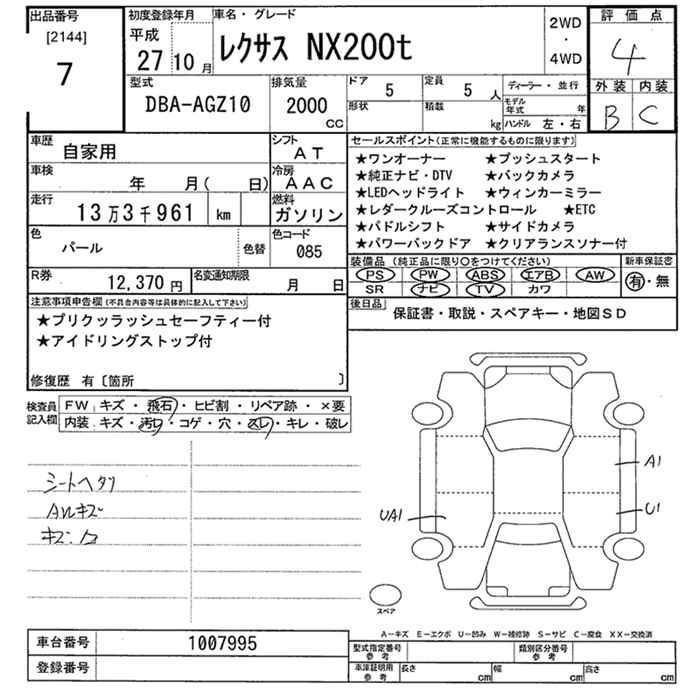 出品番号 初度登録年月 車名・グレード 評価点
[2144] 平成 レクサス NX200t 2WD・4WD 4
7 27 10月 外装 内装
型式 排気量 ドア 5 定員 5人 ディーラー・並行 B C
DBA-AGZ10 2000 CC 形状 積載 kg モデル年式 年
ハンドル 左・右
車歴 自家用 シフト AT セールスポイント(正常に機能するものに限ります)
★ワンオーナー ★プッシュスタート
車検 年 月( 日) 冷房 AAC ★純正ナビ・DTV ★バックカメラ
★LEDヘッドライト ★ウィンカーミラー
走行 13万3千961 km 燃料 ガソリン ★レダークルーズコントロール ★ETC
★パドルシフト ★サイドカメラ
色 パール 色替 色コード 085 ★パワーバックドア ★クリアランスソナー付
装備品(純正品に限り○をつけてください) 新車保証書
R券 12,370円 名変通知期限 月 日 PS PW ABS エアB AW 有・無
SR ナビ TV カワ
注意事項申告欄(不具合内容等は具体的に記入して下さい) 後日品
★プリクッラッシュセーフティー付 保証書・取説・スペアキー・地図SD
★アイドリングストップ付
修復歴 有〔箇所 〕
検査員記入欄 FW キズ・飛石・ヒビ割・リペア跡・×要
内装 キズ・汚レ・コゲ・穴・スレ・キレ・破レ
シートヘタリ
AWキズ
キズ.凹
A1
UA1 U1
スペア
A-キズ E-エクボ U-凹み W-補修跡 S-サビ C-腐食 XX-交換済
車台番号 1007995 型式指定番号 参考 類別区分番号 参考
登録番号 車庫証明用 参考 長さ cm 幅 cm 高さ cm